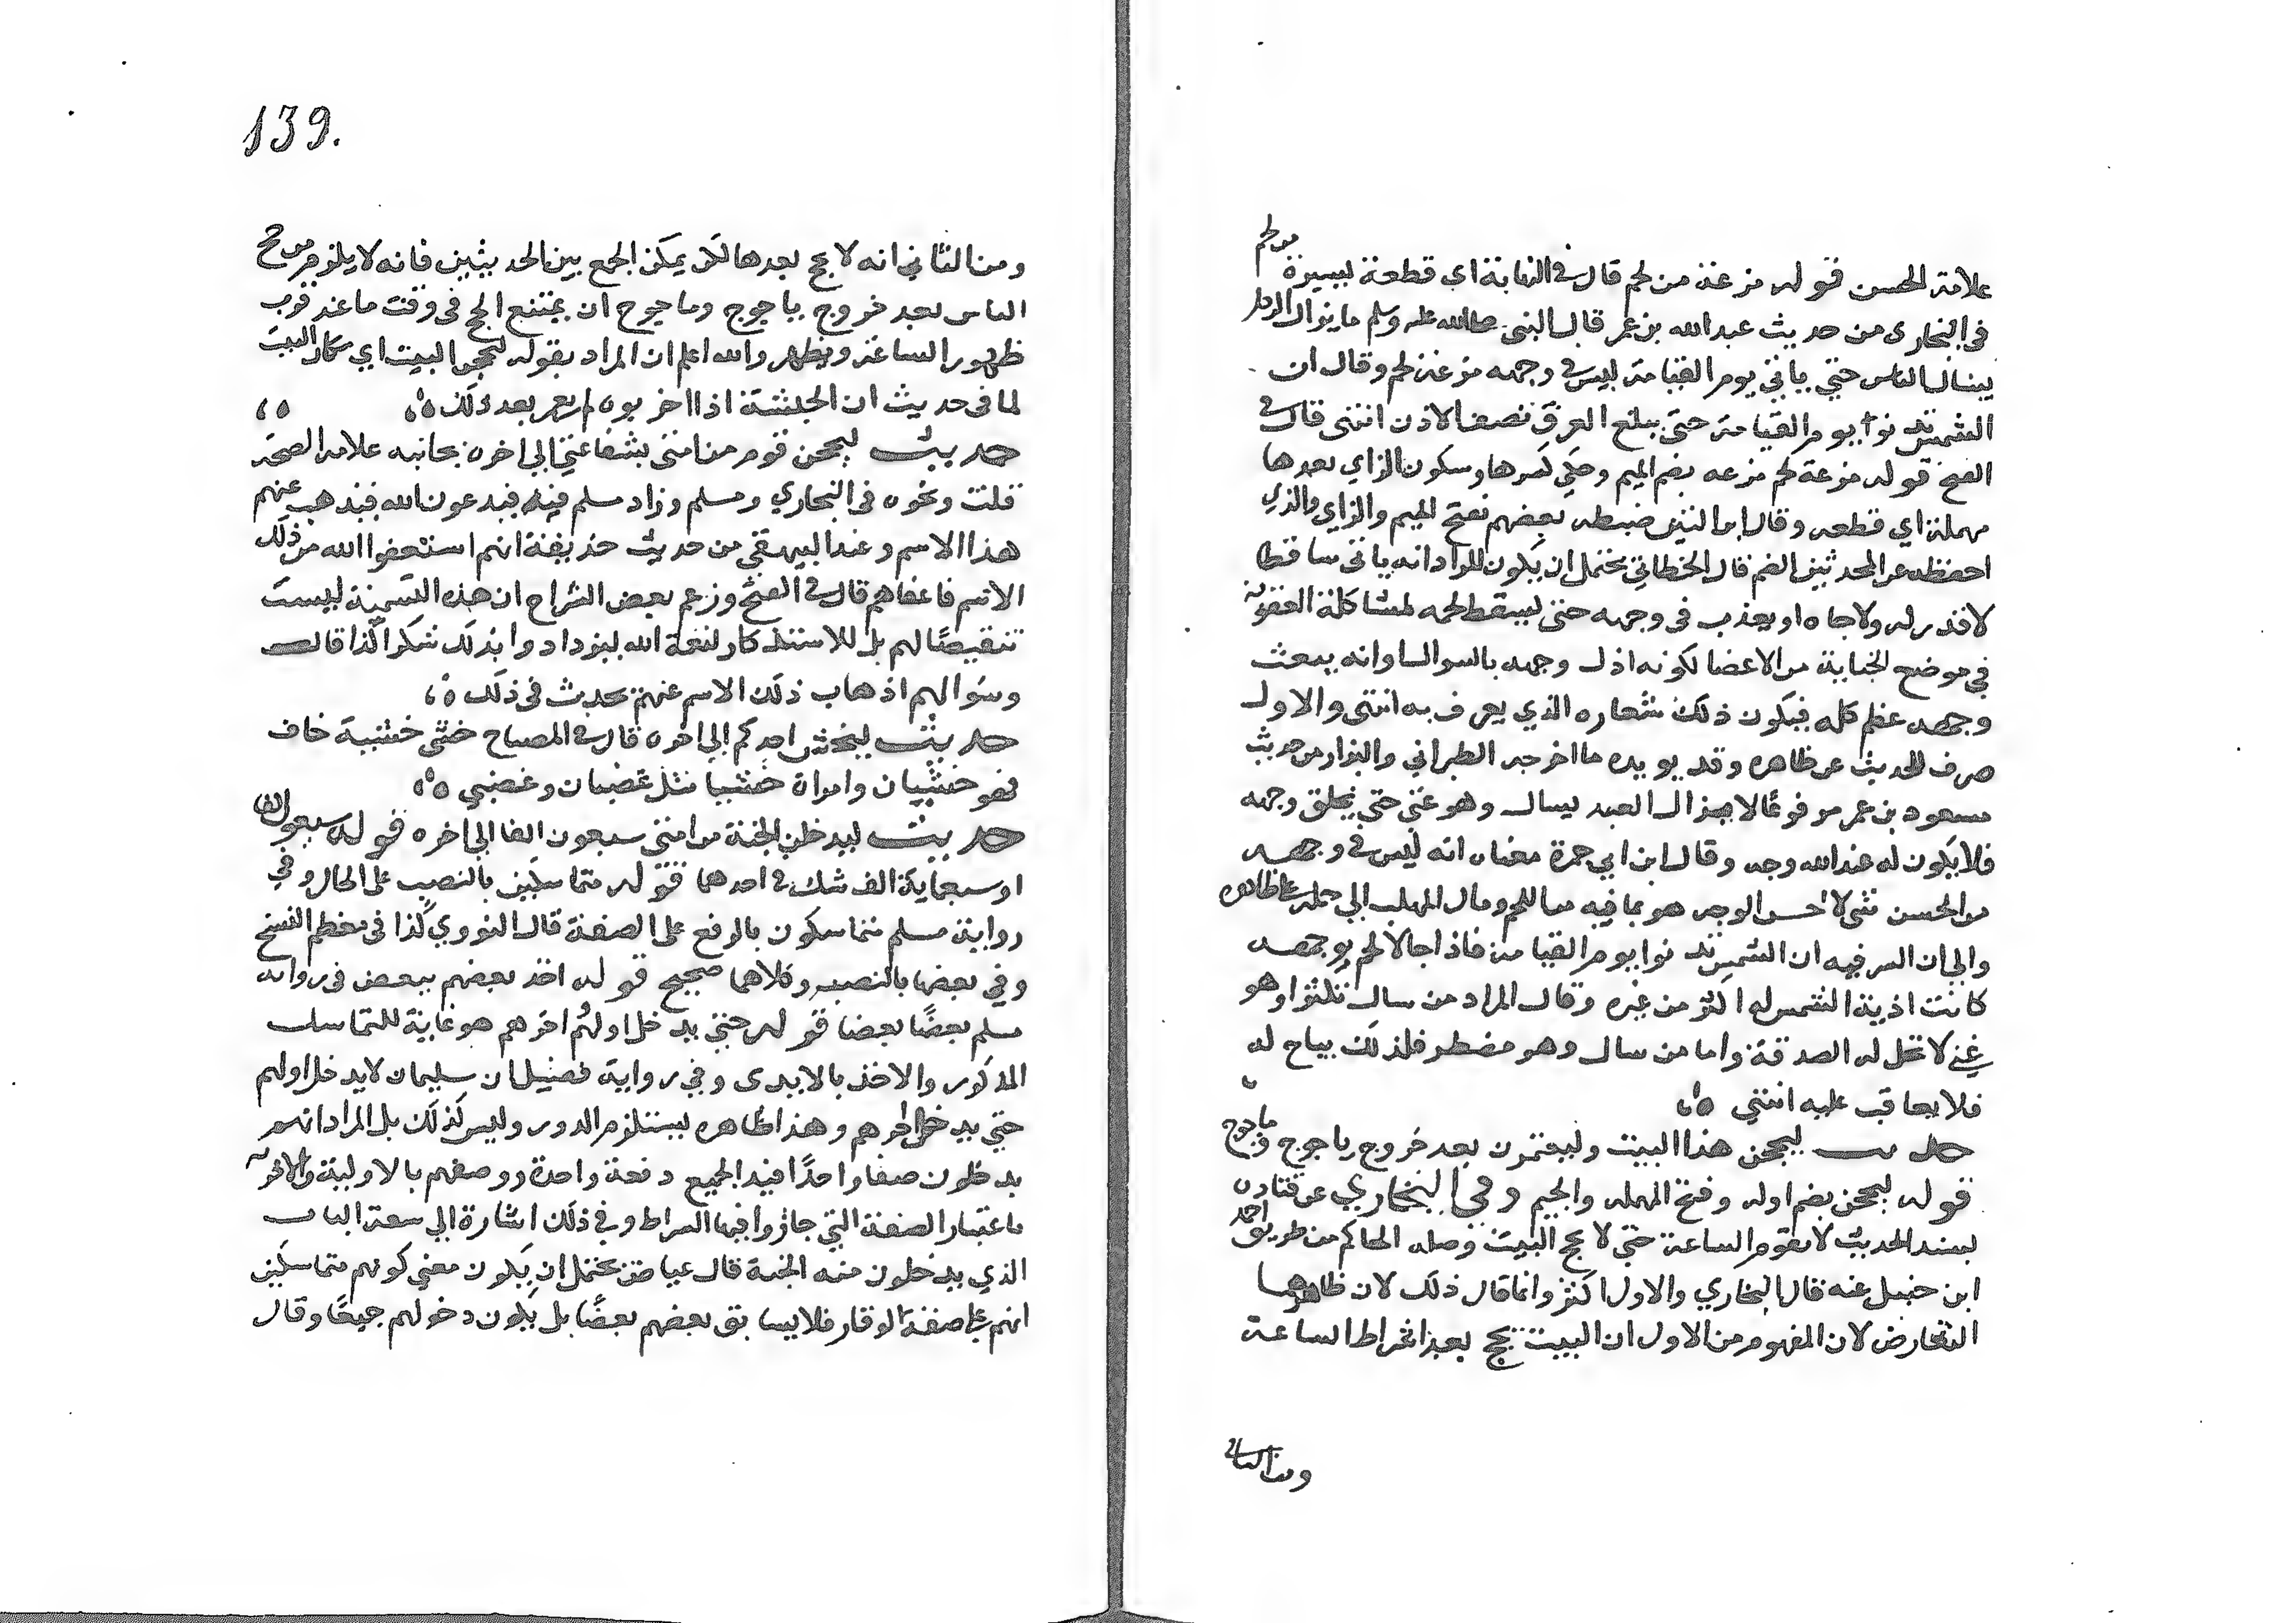 علامة الحسن قوله مزعة من لحم قال في النهاية اي قطعة يسيرة من لحم
في البخاري من حديث عبدالله بن عمر قال النبي صلى الله عليه وسلم ما يزال الرجل
يسال الناس حتي ياتي يوم القيامة ليس في وجهه مزعة لحم وقال ان
الشمس تدنوا يوم القيامة حتي يبلغ العرق نصف الاذن انتهى قال في
الفتح قوله مزعة لحم مزعه بضم الميم وحكي كسرها وسكون الزاي بعدها
مهملة اي قطعه وقال ابن التين ضبطه بعضهم بفتح الميم والزاي والذي
احفظه عن المحدثين الضم قال الخطابي يحتمل ان يكون المراد انه ياتي ساقطا
لا قدر له ولا جاه او يعذب في وجهه حتي يسقط لحمه لمشاكلة العقوبة
في موضع الجناية من الاعضا لكونه اذل وجهه بالسوال او انه يبعث
وجهه عظم كله فيكون ذلك شعاره الذي يعرف به انتهى والاول
صرف للحديث عن ظاهره وقد يويده ما اخرجه الطبراني والبزار من حديث
مسعود بن عمر مرفوعا لا يزال العبد يسال وهو غني حتي يخلق وجهه
فلا يكون له عند الله وجه وقال ابن ابي جمرة معناه انه ليس في وجهه
من الحسن شي لا حسن الوجه هو بما فيه من اللحم ومال المهلب الي حمله على ظاهره
والي ان السر فيه ان الشمس تدنوا يوم القيامة فاذا جا لا لحم بوجهه
كانت اذية الشمس له اكثر من غيره وقال المراد من سال تكثرا وهو
غني لا تحل له الصدقة واما من سال وهو مضطر فلذلك يباح له
فلا يعاقب عليه انتهي
حديث ليحجن هذا البيت وليعتمرن بعد خروج ياجوج وماجوج
قوله ليحجن بضم اوله وفتح المهمله والجيم وفي البخاري عن قتادة
بسند الحديث لا تقوم الساعة حتي لا يحج البيت وصله الحاكم من طريق احمد
ابن حنبل عنه قال البخاري والاول اكثر وانما قال ذلك لان ظاهرهما
التعارض لان المفهوم من الاول ان البيت يحج بعد اشراط الساعة
ومن الثاني
139.
ومن الثاني انه لا يحج بعدها لكن يمكن الجمع بين الحديثين فانه لا يلزم من حج
الناس بعد خروج ياجوج وماجوج ان يمتنع الحج في وقت ما عند قرب
ظهور الساعة ويظهر والله اعلم ان المراد بقوله ليحجن البيت اي مكان البيت
لما في حديث ان الحبشة اذا اخربوه لم يعمر بعد ذلك
حديث ليخرجن قوم من امتي بشفاعتي الي اخره بجانبه علامة الصحة
قلت ونحوه في البخاري ومسلم وزاد مسلم فيه فيدعون الله فيذهب عنهم
هذا الاسم وعند البيهقي من حديث حذيفة انهم استعفوا الله من ذلك
الاسم فاعفاهم قال في الفتح وزعم بعض الشراح ان هذه التسمية ليست
تنقيصا لهم بل للاستذكار لنعمة الله ليزدادوا بذلك شكرا كذا قال
وسوالهم اذهاب ذلك الاسم عنهم يخدش في ذلك
حديث ليخش احدكم الي اخره قال في المصباح خشي خشية خاف
فهو خشيان وامراة خشيا مثل غضبان وغضبي
حديث ليدخلن الجنة من امتي سبعون الفا الي اخره قوله سبعون الفا
او سبعماية الف شك في احدهما قوله متماسكين بالنصب على الحال وفي
رواية مسلم متماسكون بالرفع على الصفة قال النووي كذا في معظم النسخ
وفي بعضها بالنصب وكلاهما صحيح قوله اخذ بعضهم ببعض في رواية
مسلم بعضا بعضا قوله حتي يدخل اولهم اخرهم هو غاية للتماسك
المذكور والاخذ بالايدى وفي رواية فضيل ان سليمان لا يدخل اولهم
حتي يدخل اخرهم وهذا ظاهره يستلزم الدور وليس كذلك بل المراد انهم
يدخلون صفا واحدا فيدالجميع دفعة واحدة ووصفهم بالاولية والاخرية
باعتبار الصفة التي جازوا فيها الصراط وفي ذلك اشارة الي سعة الباب
الذي يدخلون منه الجنة قال عياض يحتمل ان يكون معني كونهم متماسكين
انهم على صفة الوقار فلا يسابق بعضهم بعضا بل يكون دخولهم جميعا وقال